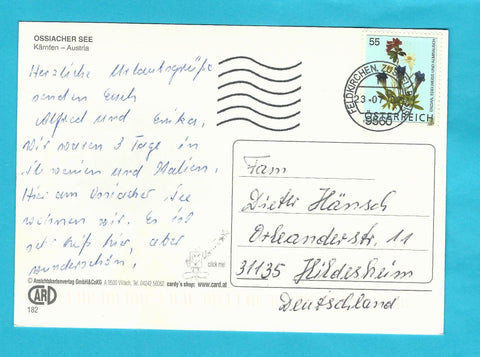 OSSIACHER SEE
Kärnten – Austria
Herzliche Urlaubsgrüße
senden Euch
Alfred und Erika.
Wir waren 3 Tage in
Slowenien und Italien.
Hier am Ossiacher See
wohnen wir. Es ist
sehr heiß hier, aber
wunderschön.
© Ansichtskartenverlag GmbH&CoKG A 9500 Villach, Tel. 04242 56062 cardy's shop: www.card.at
click me!
CARD
182
55
ENZIAN, EDELWEISS UND ALMRAUSCH
ÖSTERREICH
FELDKIRCHEN
23-07
9560
Fam
Dieter Hänsch
Orleanderstr. 11
31135 Hildesheim
Deutschland